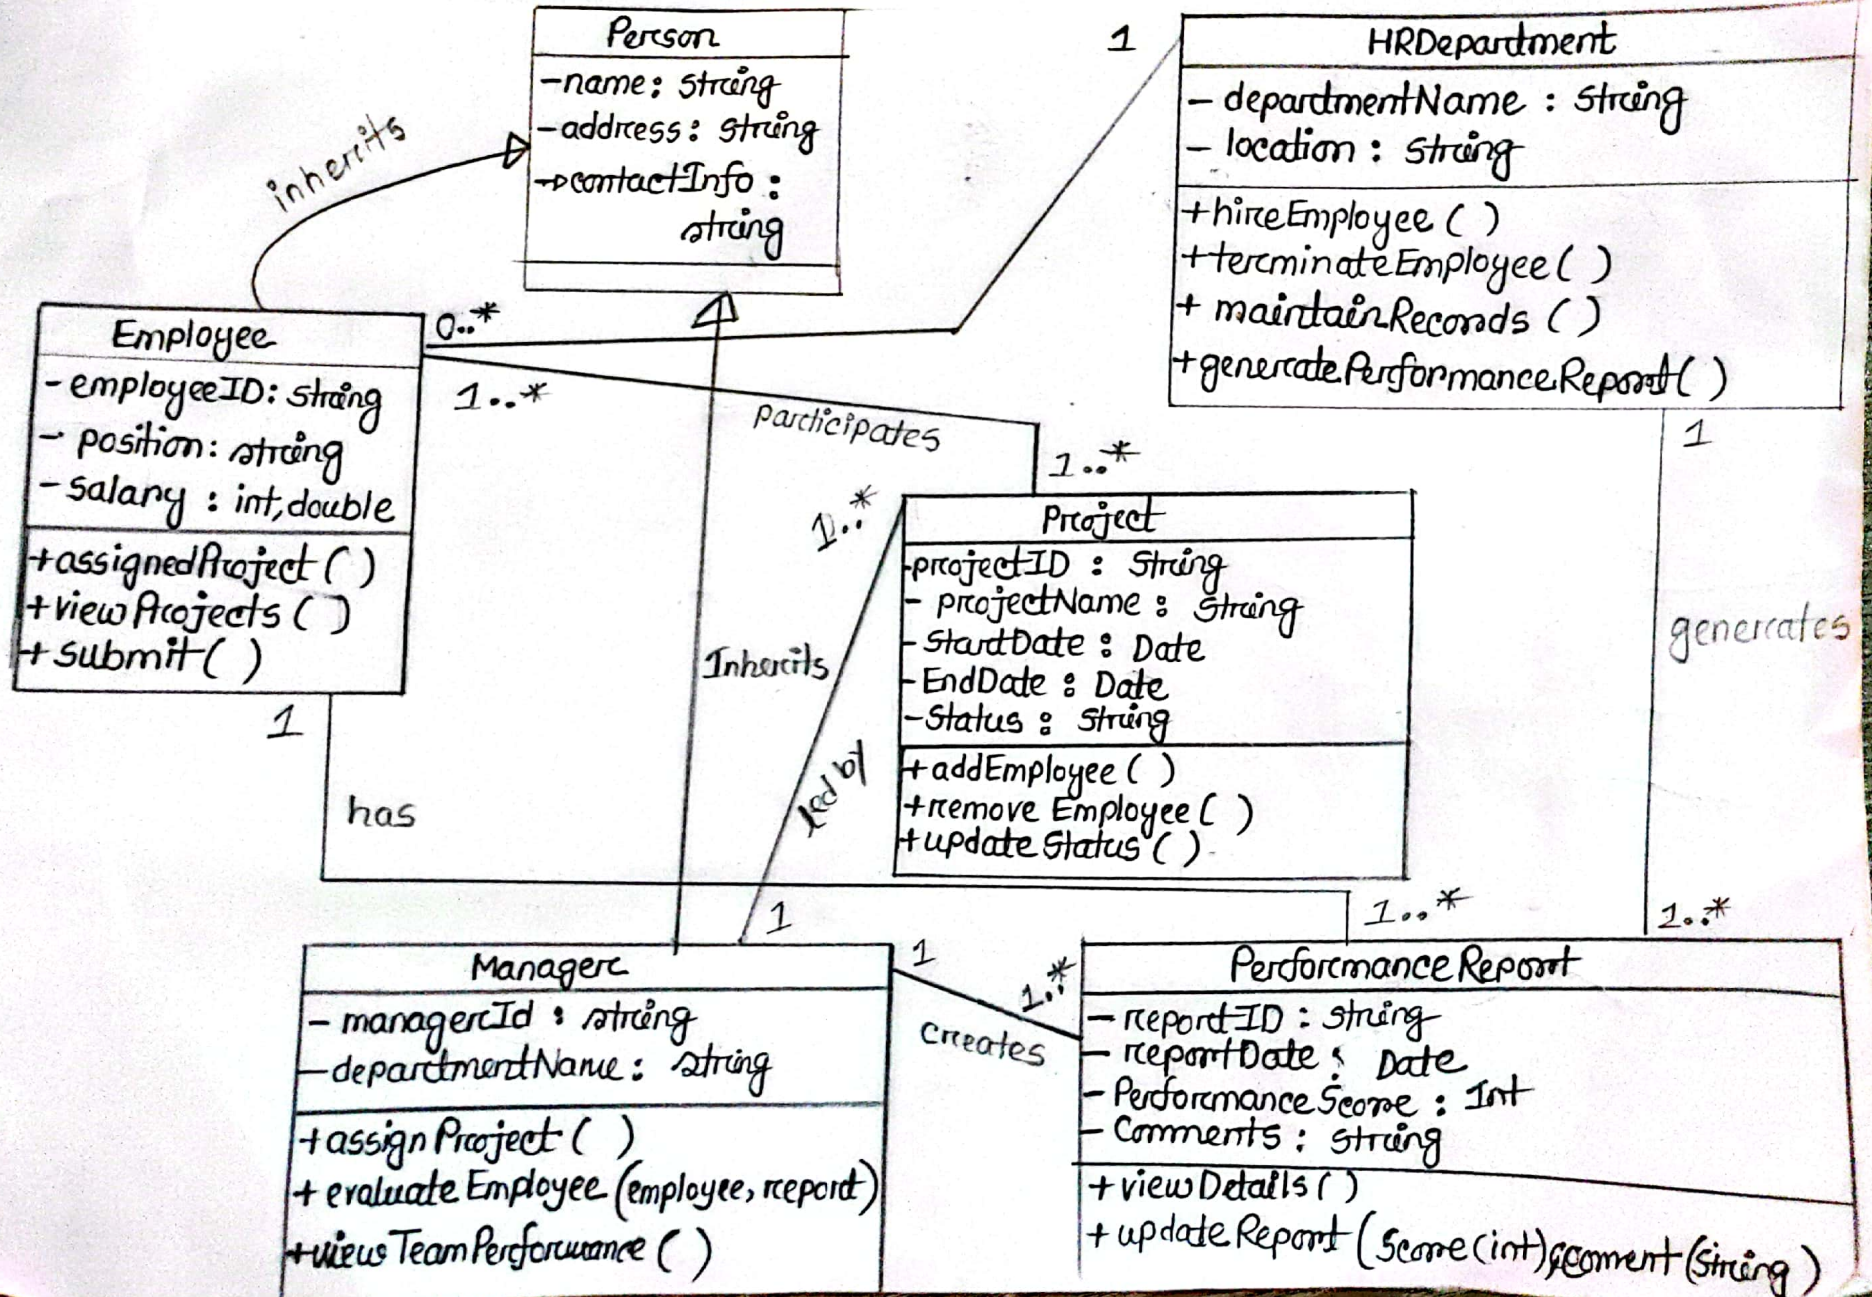 Person
-name: string
-address: string
-contactInfo :
string
inherits
1
HRDepartment
- departmentName : string
- location : string
+hireEmployee ( )
+terminateEmployee( )
+ maintainRecords ( )
+generatePerformanceReport( )
1
generates
1..*
Employee
- employeeID: string
- position: string
- salary : int,double
+assignedProject ( )
+viewProjects ( )
+submit( )
0..*
1..*
participates
1..*
1
has
1..*
Inherits
1..*
led by
1
Project
-projectID : String
- projectName : string
-StartDate : Date
-EndDate : Date
-Status : string
+addEmployee ( )
+remove Employee( )
+update Status ( )
Manager
- managerId : string
-departmentName : string
+assign Project ( )
+ evaluate Employee (employee, report)
+view Team Performance ( )
1
1..*
creates
Performance Report
- reportID : string
- reportDate : Date
- Performance Score : Int
- Comments : string
+ view Details ( )
+ update Report (Score(int),coment (string )